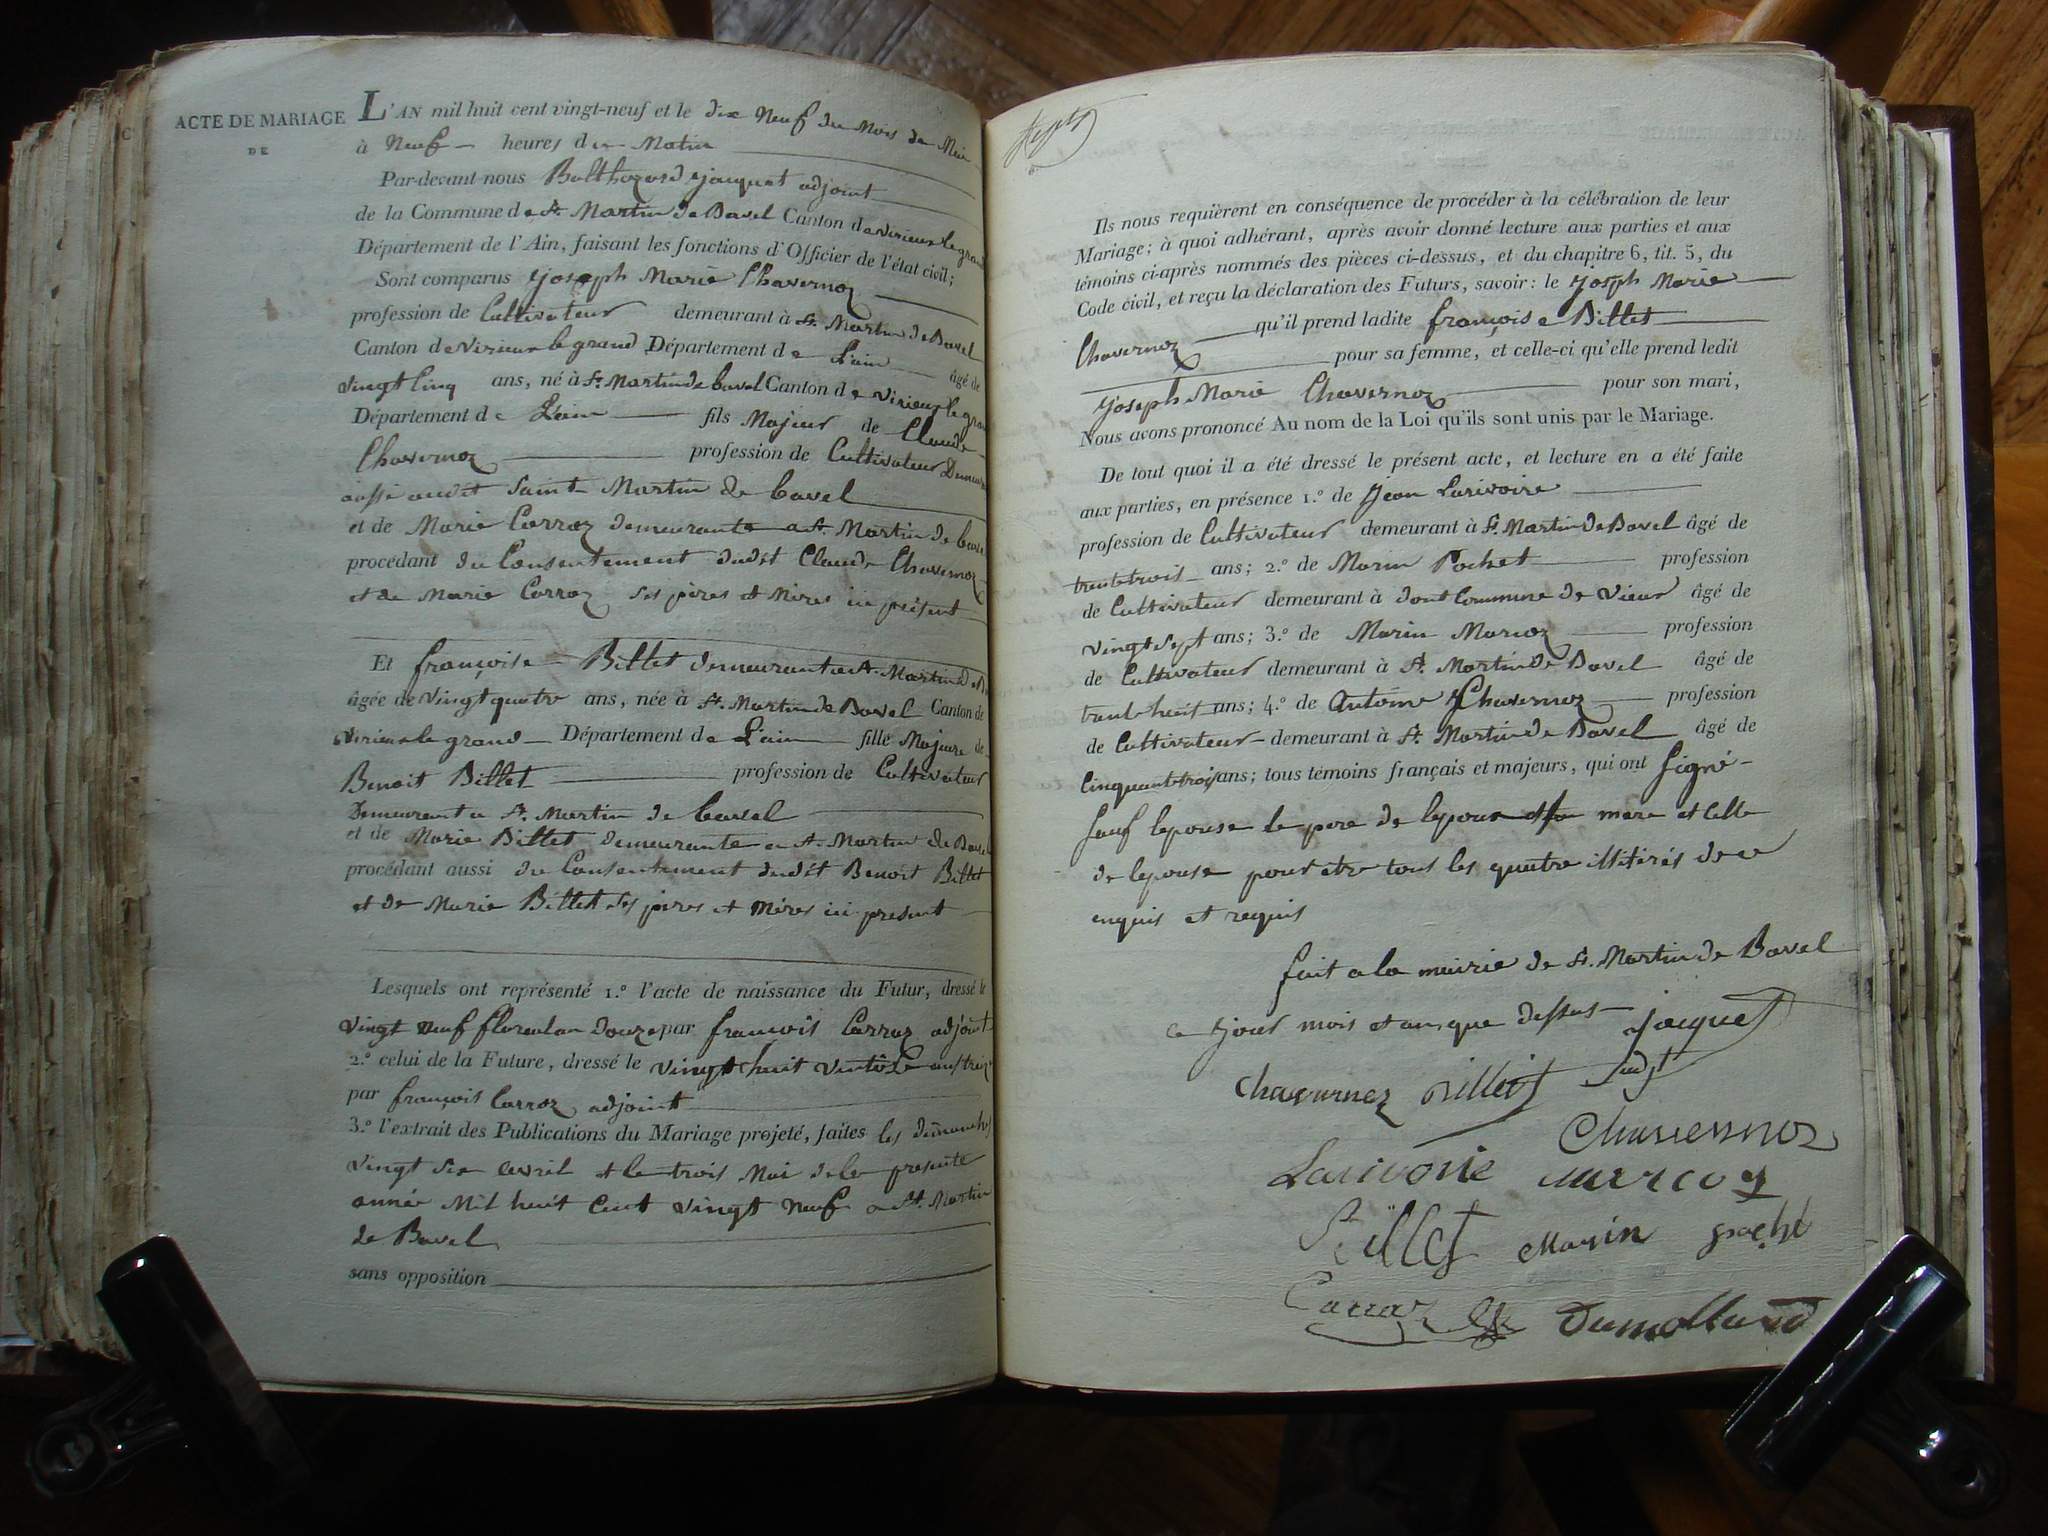 ACTE DE MARIAGE
DE
L'AN mil huit cent vingt-neuf et le dix Neuf du Mois de Mai
à Neuf heures du Matin
Par-devant nous Balthazard Jacquet adjoint
de la Commune de St. Martin de Bavel Canton de virieux le grand
Département de l'Ain, faisant les fonctions d'Officier de l'état civil;
Sont comparus Joseph Marie Chavernoz
profession de Cultivateur demeurant à St. Martin de Bavel
Canton de virieux le grand Département de L'ain âgé de
vingt Cinq ans, né à St. Martin de bavel Canton de virieux le gran
Département de L'ain fils Majeur de Claude
Chavernoz profession de Cultivateur Demeurant
aussi audit Saint Martin de bavel
et de Marie Carroz demeurante a St. Martin de bavel
procédant du Consentement dudit Claude Chavernoz
et de Marie Carroz ses pères et Mères ici présent
Et françoise Billet demeurante a St. Martin de B
âgée de vingt quatre ans, née à St. Martin de Bavel Canton de
virieux le grand Département de L'ain fille Majeure de
Benoit Billet profession de Cultivateur
Demeurant a St. Martin de bavel
et de Marie Billet demeurante a St. Martin de Bavel
procédant aussi du Consentement dudit Benoit Billet
et de Marie Billet ses pères et mères ici présent
Lesquels ont représenté 1.º l'acte de naissance du Futur, dressé le
vingt neuf floreal an douze par françois Carroz adjoint
2.º celui de la Future, dressé le vingt huit ventôse an treize
par françois Carroz adjoint
3.º l'extrait des Publications du Mariage projeté, faites les dimanches
vingt six avril et le trois Mai de la presente
année Mil huit Cent vingt neuf a St. Martin
de Bavel
sans opposition
Ils nous requièrent en conséquence de procéder à la célébration de leur
Mariage; à quoi adhérant, après avoir donné lecture aux parties et aux
témoins ci-après nommés des pièces ci-dessus, et du chapitre 6, tit. 5, du
Code civil, et reçu la déclaration des Futurs, savoir: le Joseph Marie
Chavernoz qu'il prend ladite françoise Billet
pour sa femme, et celle-ci qu'elle prend ledit
Joseph Marie Chavernoz pour son mari,
Nous avons prononcé Au nom de la Loi qu'ils sont unis par le Mariage.
De tout quoi il a été dressé le présent acte, et lecture en a été faite
aux parties, en présence 1.º de Jean Larivoire
profession de Cultivateur demeurant à St. Martin de Bavel âgé de
trente trois ans; 2.º de Marin Pochet profession
de Cultivateur demeurant à dont Commune de Vieux âgé de
vingt sept ans; 3.º de Marin Marcoz profession
de Cultivateur demeurant à St. Martin de Bavel âgé de
trente huit ans; 4.º de Antoine Chavernoz profession
de Cultivateur demeurant à St. Martin de Bavel âgé de
Cinquante trois ans; tous témoins français et majeurs, qui ont signé
sauf lepouse le pere de lepoux et sa mere et Celle
de lepouse pour etre tous les quatre illitérés de ce
enquis et requis
fait a la mairie de St. Martin de Bavel
ce Jour mois et an que dessus Jacquet
adjt
Chavernoz Billet
Chavernoz
Larivoire Marcoz
Billet Marin poché
Carraz Dumollard